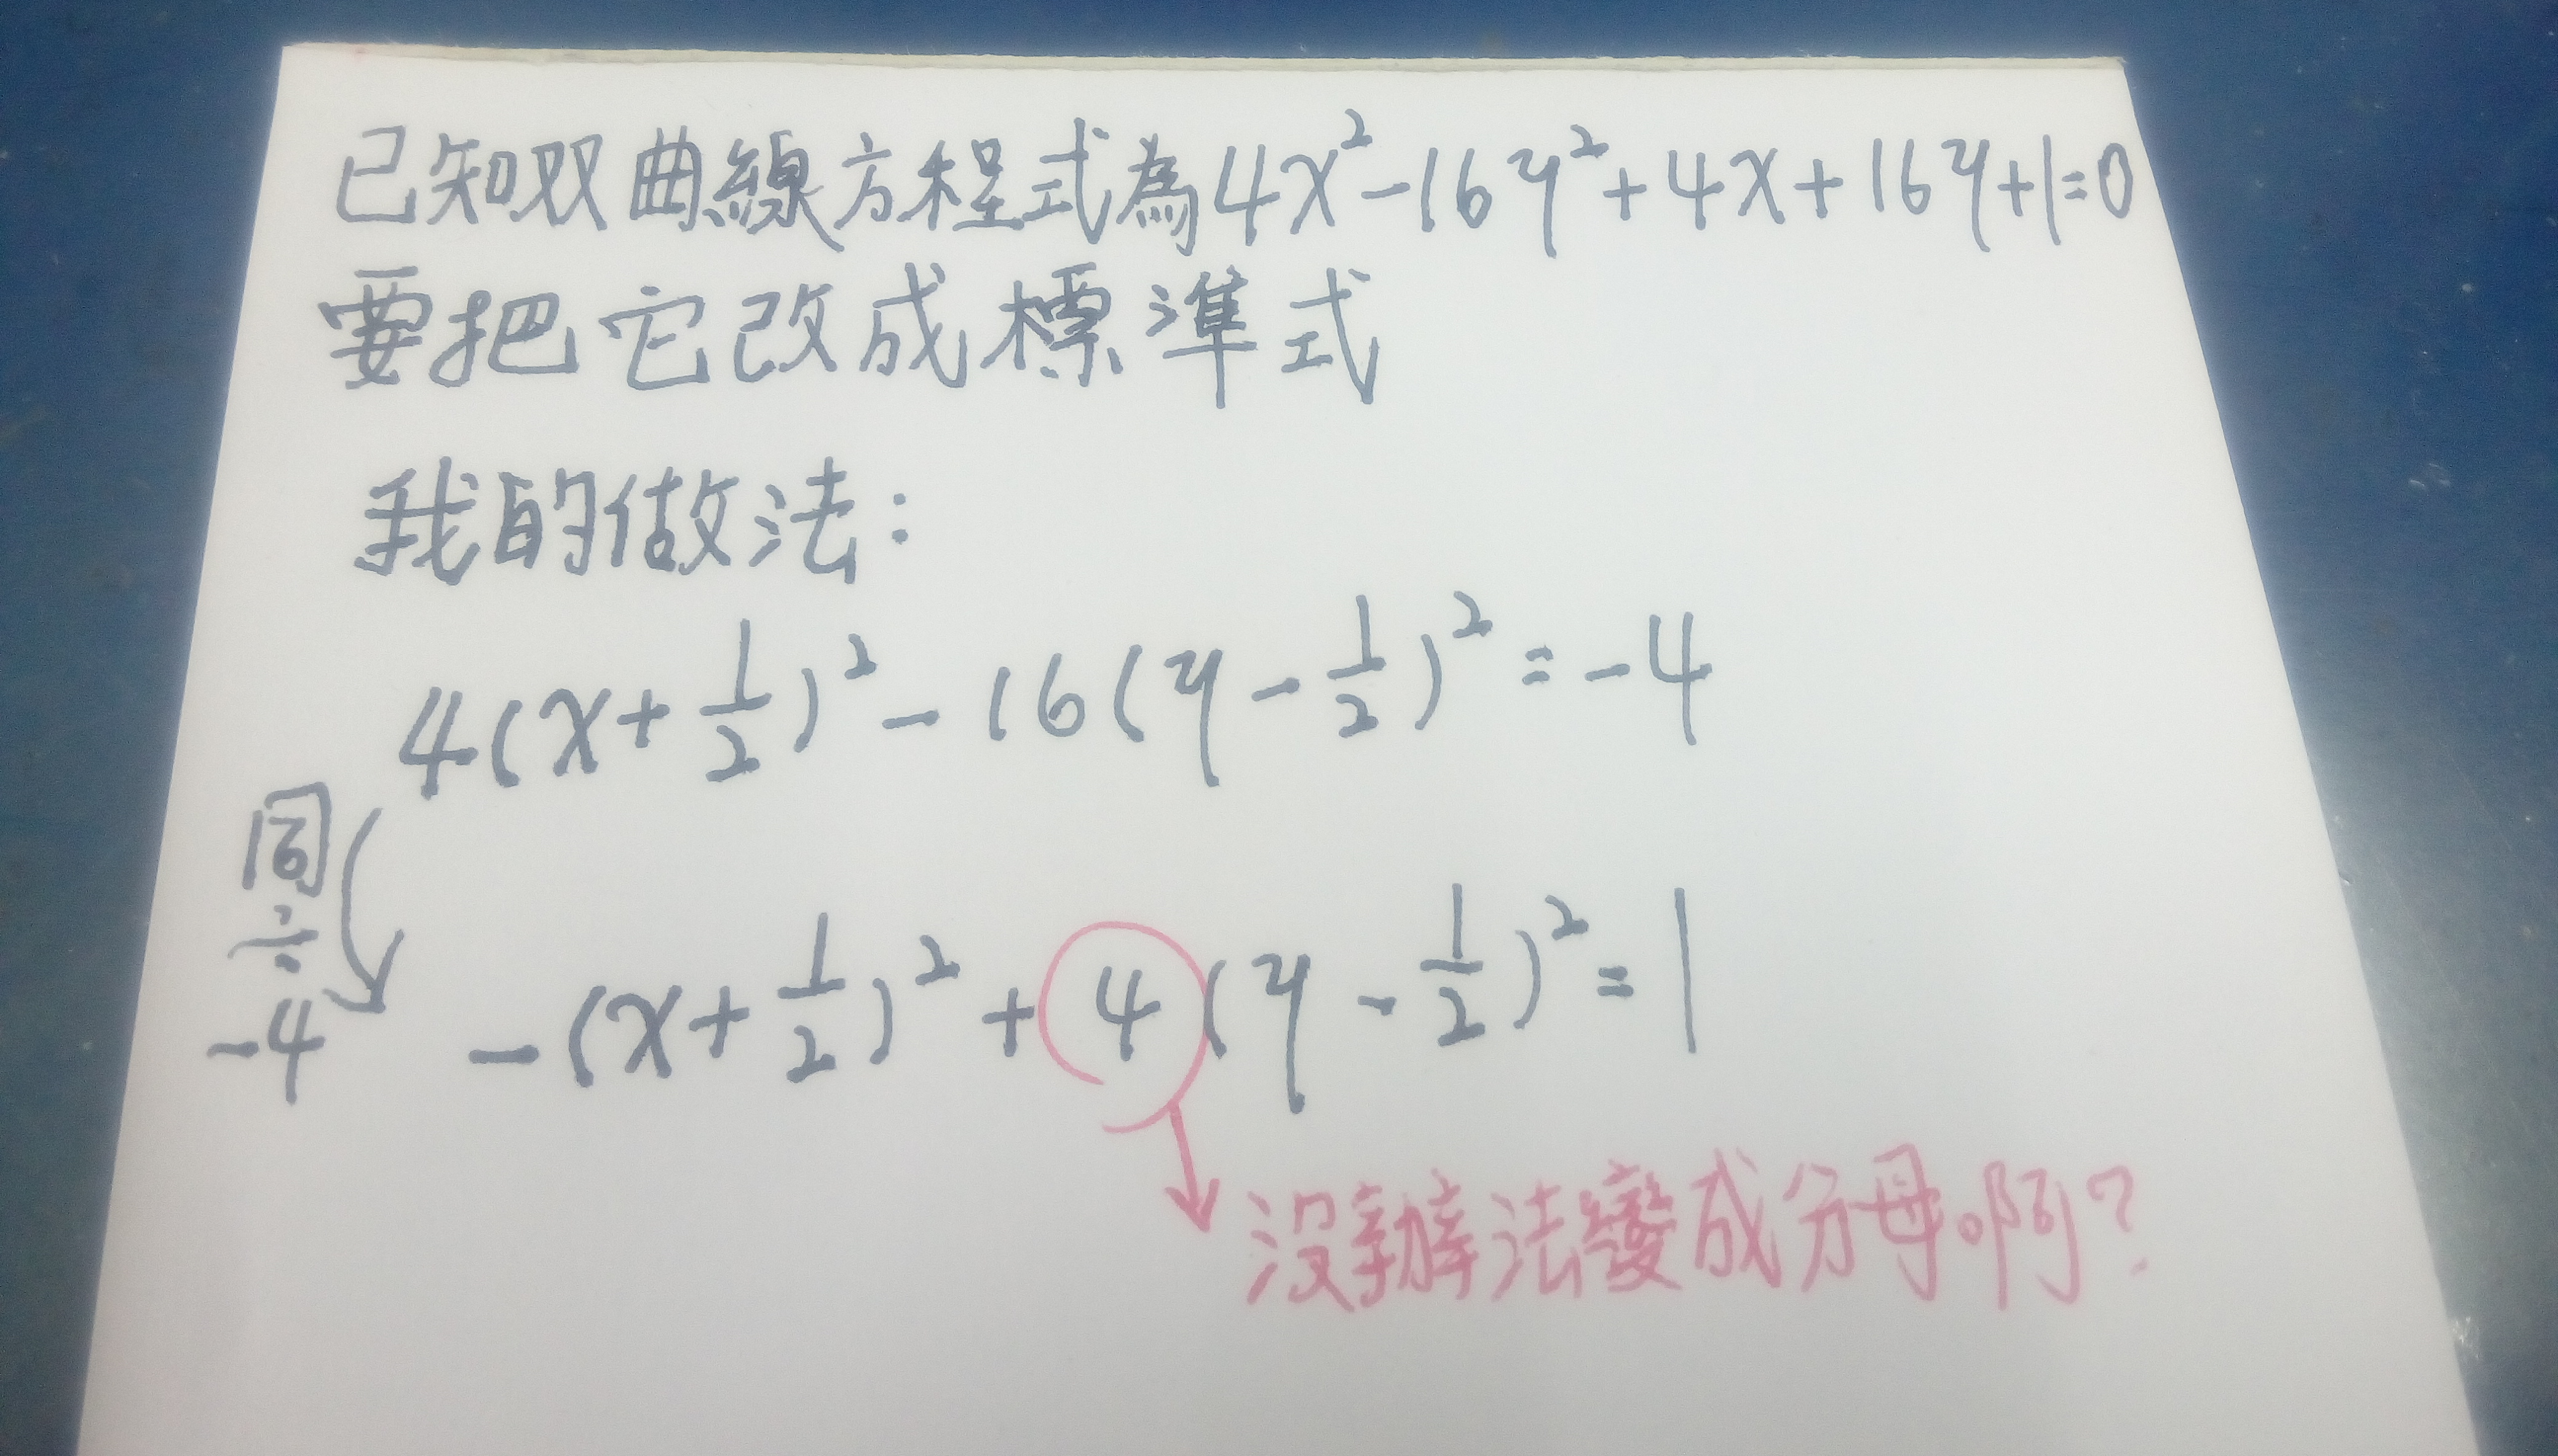 已知双曲線方程式為4x²-16y²+4x+16y+1=0
要把它改成標準式
我的做法:
4(x+1/2)²-16(y-1/2)²=-4
同÷-4
-(x+1/2)²+4(y-1/2)²=1
沒辦法變成分母啊?